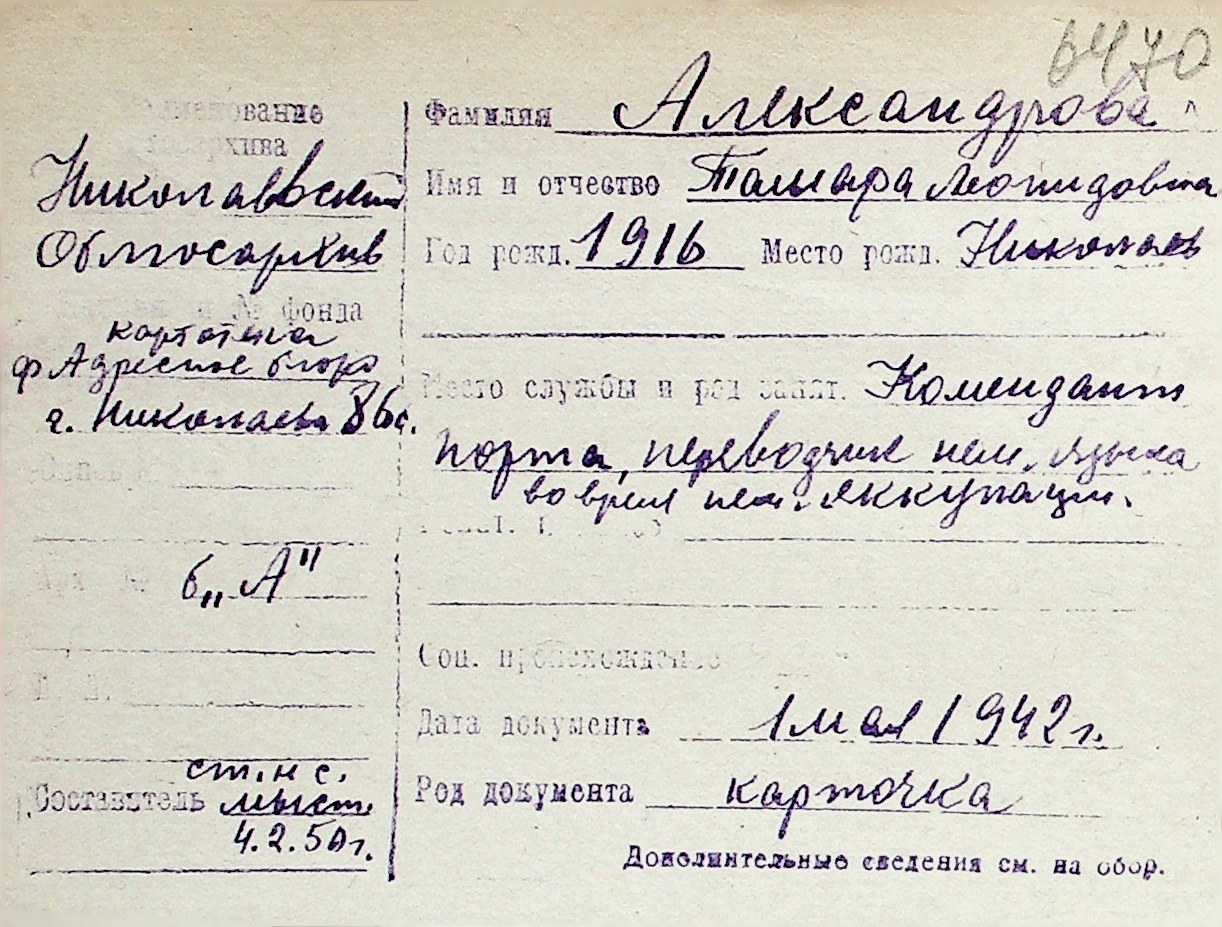 6470
Наименование
госархива
Николаевский
Облгосархив
и № фонда
картотека
ф Адресное бюро
г. Николаева 86с.
б. „А"
Составитель
ст. н с.
4.2.50г.
Фамилия Александрова
Имя и отчество Тамара Леонидовна
Год рожд. 1916 Место рожд. Николаев
Место службы и род занят. Комендант
порта, переводчик нем. языка
во время нем. яккупации.
Соц. происхождение
Дата документа 1 мая 1942 г.
Род документа карточка
Дополнительные сведения см. на обор.